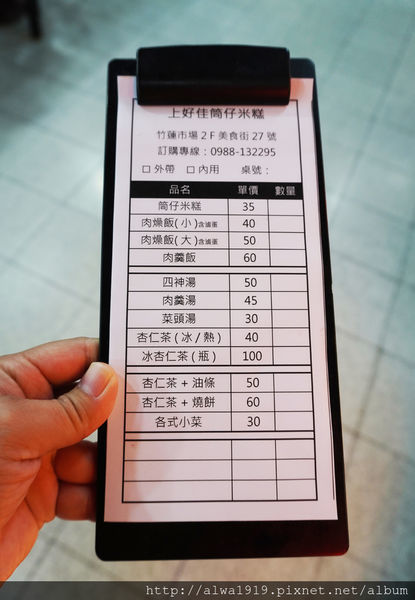 上好佳筒仔米糕
竹蓮市場2F美食街27號
訂購專線:0988-132295
□外帶 □內用 桌號:
品名 單價 數量
筒仔米糕 35
肉燥飯(小)含滷蛋 40
肉燥飯(大)含滷蛋 50
肉羹飯 60
四神湯 50
肉羹湯 45
菜頭湯 30
杏仁茶(冰/熱) 40
冰杏仁茶(瓶) 100
杏仁茶+油條 50
杏仁茶+燒餅 60
各式小菜 30
http://alwa1919.pixnet.net/album